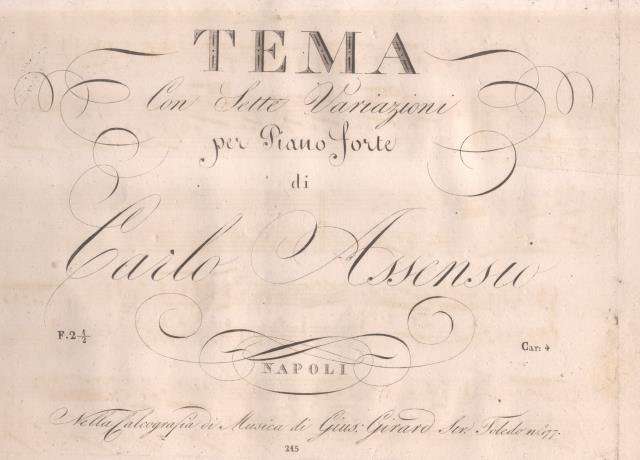 TEMA
Con Sette Variazioni
per Piano forte
di
Carlo Assensio
F. 2 1/2
Car: 4
NAPOLI
Nella Calcografia di Musica di Gius: Girard Str. Toledo n.° 177.
215